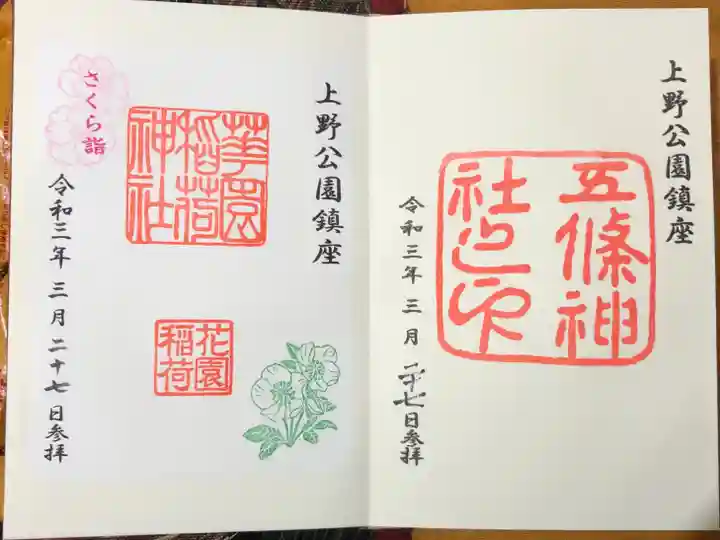 上野公園鎮座
五條神
社之印
令和三年三月二十七日参拝
上野公園鎮座
華園
稲荷
神社
花園
稲荷
さくら詣
令和三年三月二十七日参拝